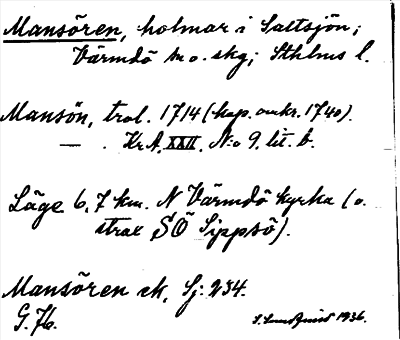 Mansören, holmar i Saltsjön;
Värmdö sn o. skg; Sthlms l.
Mansön, trol. 1714 (kop. omkr. 1740).
— . Kr.A. XXII. N:o 9. lit. b.
Läge 6,7 km. N Värmdö kyrka (o.
strax SÖ Sippsö).
Mansören ek, Sj. 234.
G. 76.
1936.